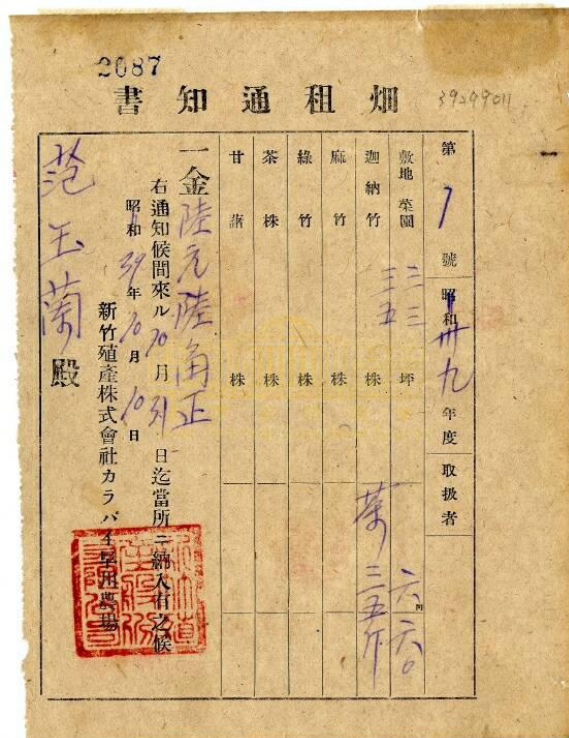 2087
39299011
畑租通知書
第 7 號 昭和卅九年度 取扱者
敷地 菜園 二三 坪 六六〇
迦納竹 三三五 株 葉三五斤
麻竹 株
綠竹 株
茶株 株
甘藷 株
一金陸元陸角正
右通知候間來ル10月31日迄當所ニ納入有之候
昭和39年10月10日
新竹殖產株式會社カラパイ早川農場
范玉蘭殿